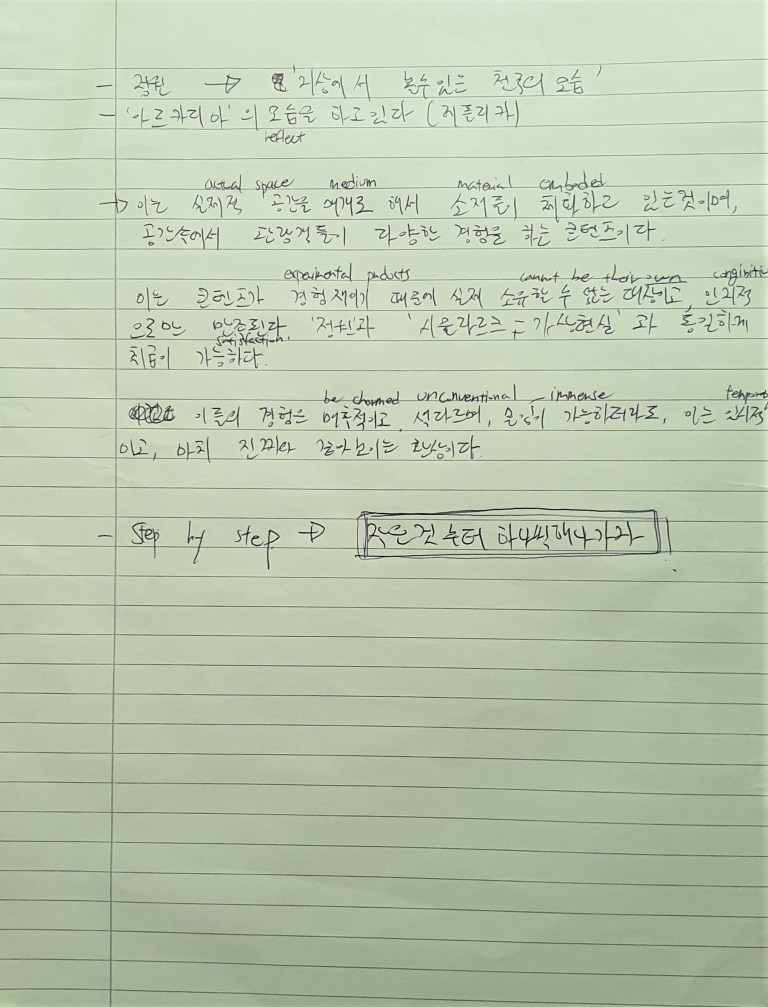 - 정원 → '지상에서 볼수있는 천국의 모습'
- '아르카디아'의 모습을 하고있다 (레플리카)
reflect
actual space medium material embodied
→ 이는 실제적 공간을 매개로 해서 소재들이 체화하고 있는것이며,
공간속에서 관람객들이 다양한 경험을 하는 콘텐츠이다.
experimental products cannot be their own
이는 콘텐츠가 경험재이기 때문에 실제 소유할 수 없는 대상이고, 인지적
으로만 만족된다. '정원'과 '시뮬라르크 = 가상현실' 과 동일하게
satisfaction.
치급이 가능하다.
be charmed unconventional immense
이들의 경험은 매혹적이고, 색다르며, 몰입이 가능하더라도, 이는 일시적
이고, 마치 진짜와 같아 보이는 환상이다.
- Step by step → 작은것부터 하나씩해나가자